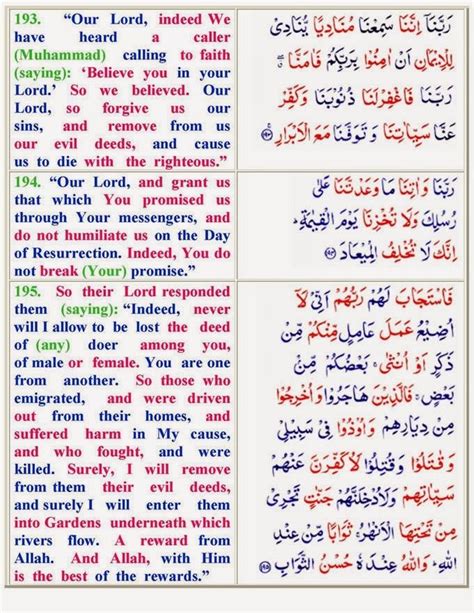 193. "Our Lord, indeed We
have heard a caller
(Muhammad) calling to faith
(saying): 'Believe you in your
Lord.' So we believed. Our
Lord, so forgive us our
sins, and remove from us
our evil deeds, and cause
us to die with the righteous."
رَبَّنَا اِنَّنَا سَمِعْنَا مُنَادِيًا يُّنَادِىْ
لِلْاِيْمَانِ اَنْ اٰمِنُوْا بِرَبِّكُمْ فَاٰمَنَّا
رَبَّنَا فَاغْفِرْلَنَا ذُنُوْبَنَا وَكَفِّرْ
عَنَّا سَيِّاٰتِنَا وَ تَوَفَّنَا مَعَ الْاَبْرَارِ ﴿١٩٣﴾
194. "Our Lord, and grant us
that which You promised us
through Your messengers, and
do not humiliate us on the Day
of Resurrection. Indeed, You do
not break (Your) promise."
رَبَّنَا وَاٰتِنَا مَا وَعَدْتَّنَا عَلٰى
رُسُلِكَ وَلَا تُخْزِنَا يَوْمَ الْقِيٰمَةِ
اِنَّكَ لَا تُخْلِفُ الْمِيْعَادَ ﴿١٩٤﴾
195. So their Lord responded
them (saying): "Indeed, never
will I allow to be lost the deed
of (any) doer among you,
of male or female. You are one
from another. So those who
emigrated, and were driven
out from their homes, and
suffered harm in My cause,
and who fought, and were
killed. Surely, I will remove
from them their evil deeds,
and surely I will enter them
into Gardens underneath which
rivers flow. A reward from
Allah. And Allah, with Him
is the best of the rewards."
فَاسْتَجَابَ لَهُمْ رَبُّهُمْ اَنِّىْ لَاۤ
اُضِيْعُ عَمَلَ عَامِلٍ مِّنْكُمْ مِّنْ
ذَكَرٍ اَوْ اُنْثٰى بَعْضُكُمْ مِّنْ
بَعْضٍ فَالَّذِيْنَ هَاجَرُوْا وَ اُخْرِجُوْا
مِنْ دِيَارِهِمْ وَ اُوْذُوْا فِىْ سَبِيْلِىْ
وَ قٰتَلُوْا وَ قُتِلُوْا لَاُكَفِّرَنَّ عَنْهُمْ
سَيِّاٰتِهِمْ وَ لَاُدْخِلَنَّهُمْ جَنّٰتٍ تَجْرِىْ
مِنْ تَحْتِهَا الْاَنْهٰرُ ثَوَابًا مِّنْ عِنْدِ
اللّٰهِ وَ اللّٰهُ عِنْدَهٗ حُسْنُ الثَّوَابِ ﴿١٩٥﴾